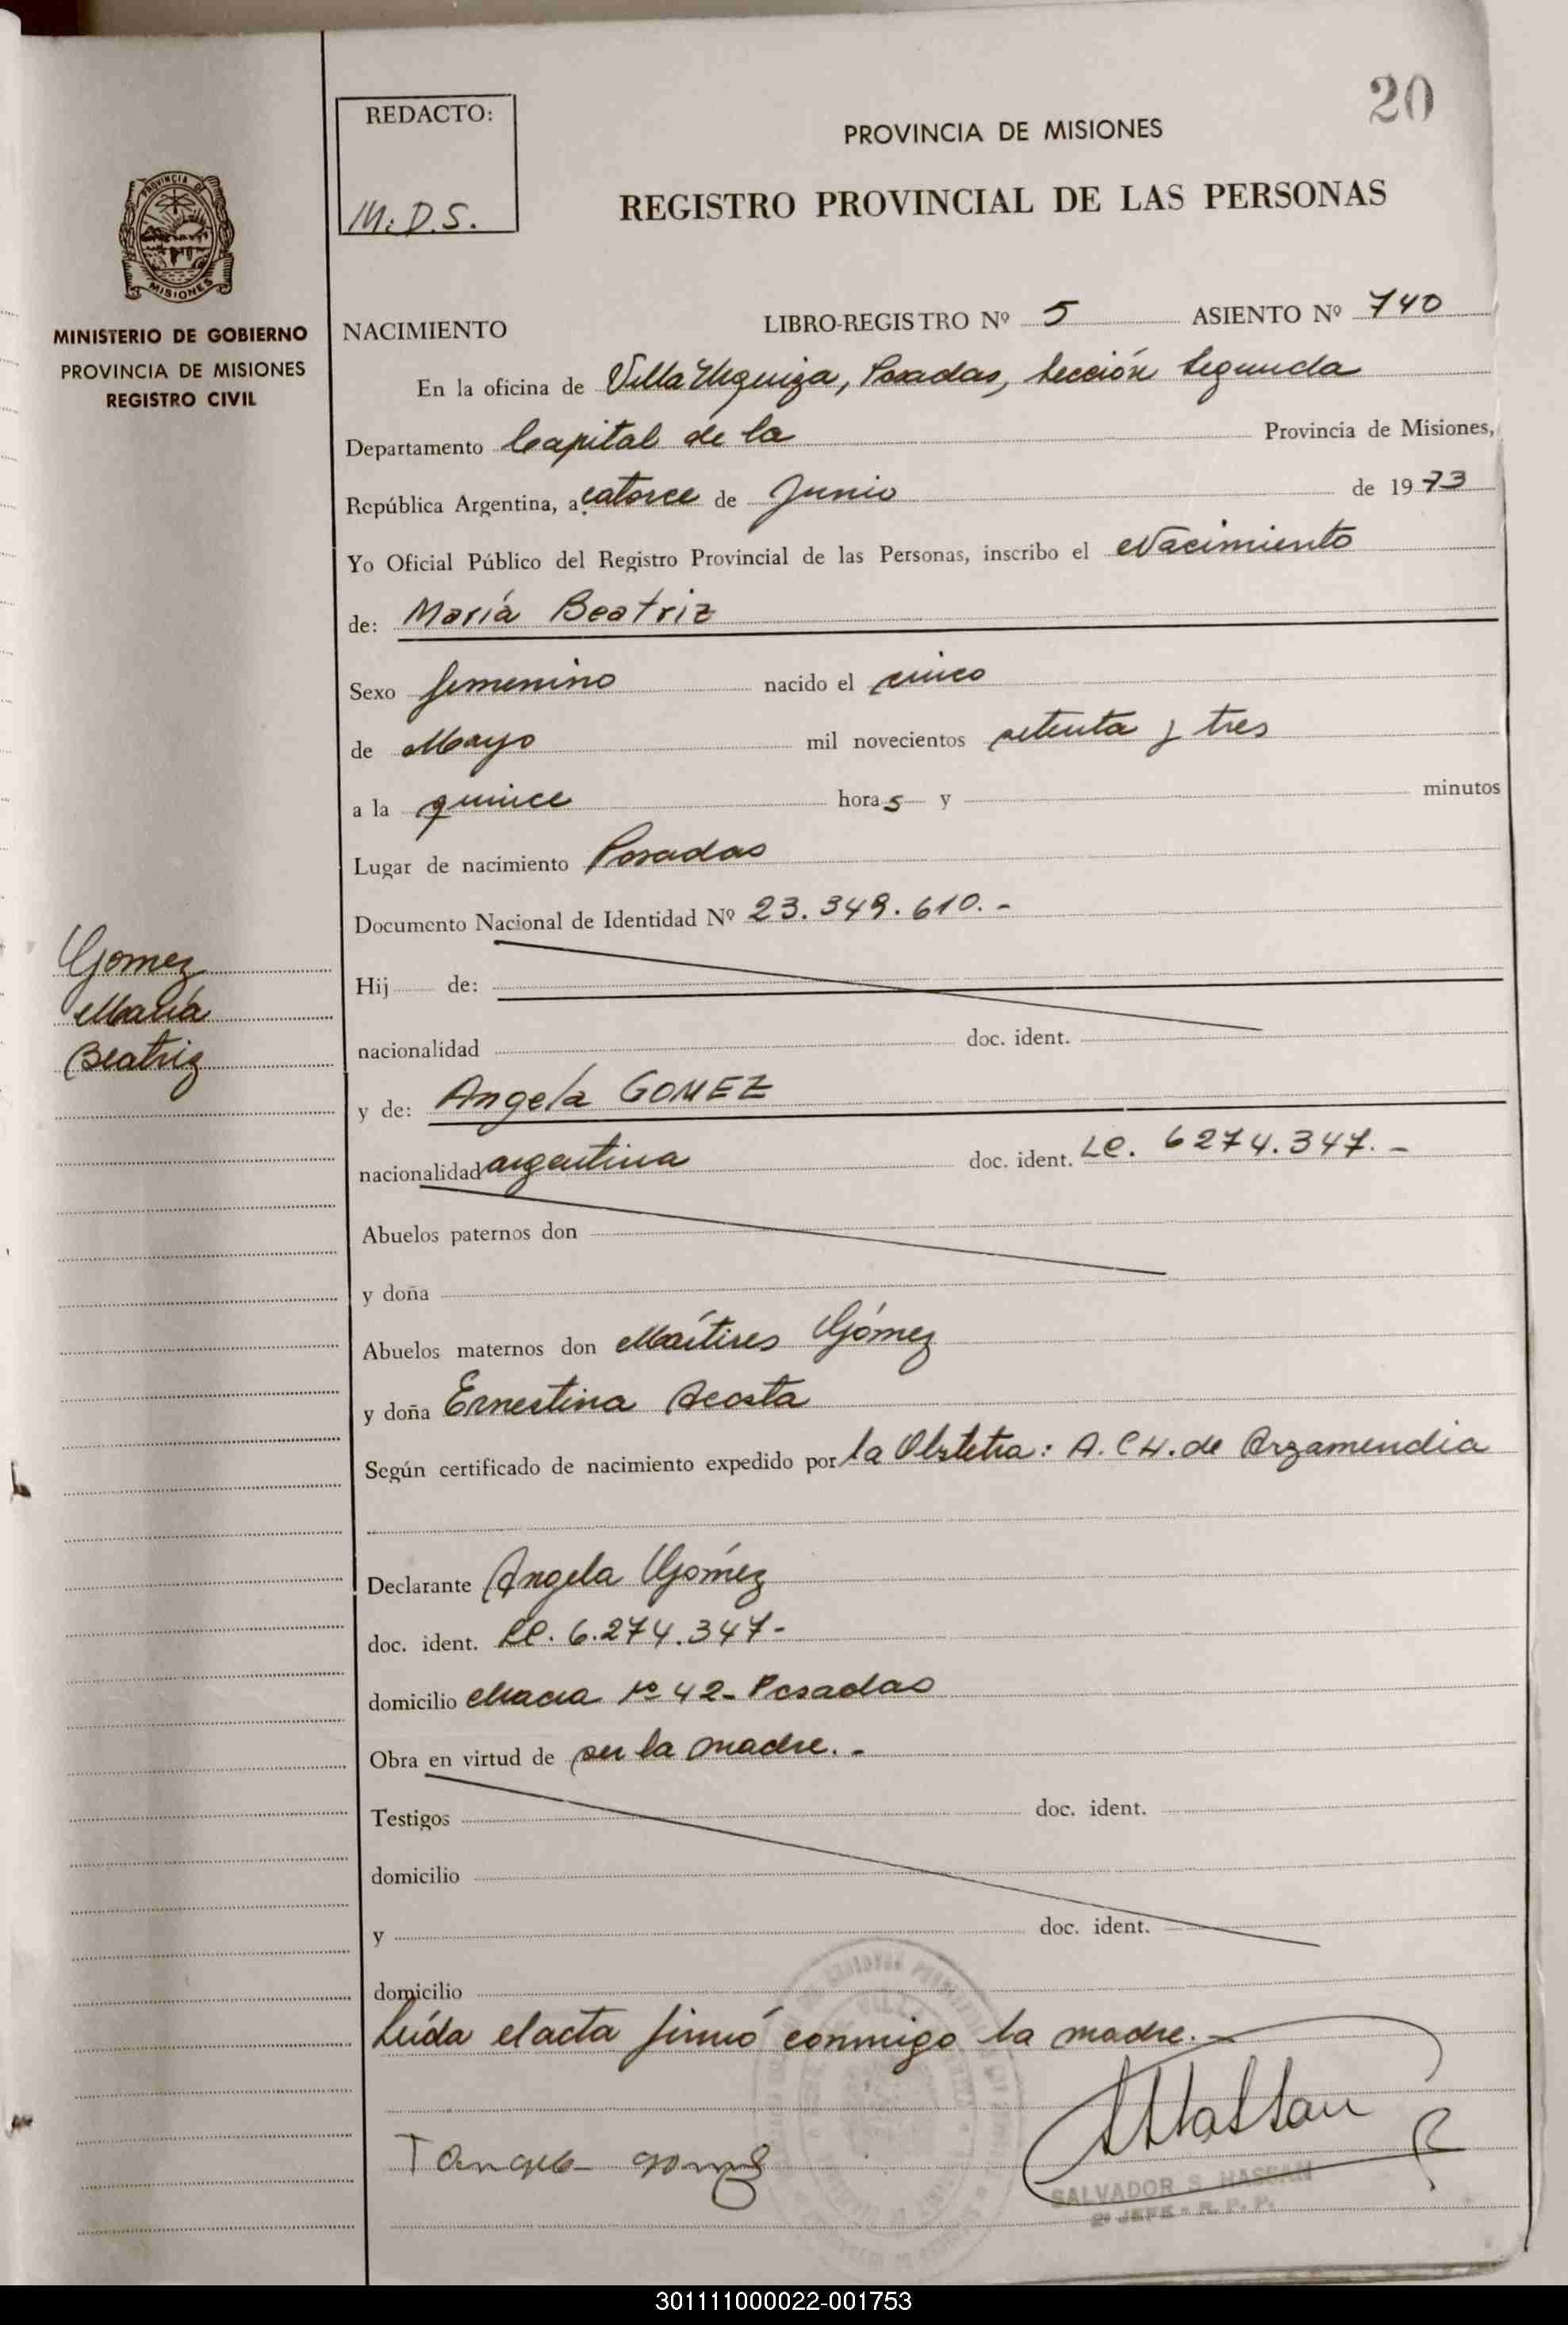 20
REDACTO:
M.D.S.
PROVINCIA DE MISIONES
REGISTRO PROVINCIAL DE LAS PERSONAS
PROVINCIA DE
MISIONES
MINISTERIO DE GOBIERNO
PROVINCIA DE MISIONES
REGISTRO CIVIL
NACIMIENTO LIBRO-REGISTRO Nº 5 ASIENTO Nº 740
En la oficina de Villa Urquiza, Posadas, Sección Segunda
Departamento Capital de la Provincia de Misiones,
República Argentina, a catorce de Junio de 1973
Yo Oficial Público del Registro Provincial de las Personas, inscribo el Nacimiento
de: María Beatriz
Sexo femenino nacido el cinco
de Mayo mil novecientos setenta y tres
a la quince horas y minutos
Lugar de nacimiento Posadas
Documento Nacional de Identidad Nº 23.349.610.-
Gomez
María
Beatriz
Hij de:
nacionalidad doc. ident.
y de: Angela GOMEZ
nacionalidad argentina doc. ident. LC. 6274.347.-
Abuelos paternos don
y doña
Abuelos maternos don Mártires Gómez
y doña Ernestina Acosta
Según certificado de nacimiento expedido por la Obstetra: A. CH. de Orzamendia
Declarante Angela Gómez
doc. ident. LC. 6.274.347-
domicilio Chacra Nº 42- Posadas
Obra en virtud de ser la madre.-
Testigos doc. ident.
domicilio
y doc. ident.
domicilio
Leída el acta firmó conmigo la madre.-
SALVADOR S. HASSAN
2º JEFE - R. P. P.
301111000022-001753